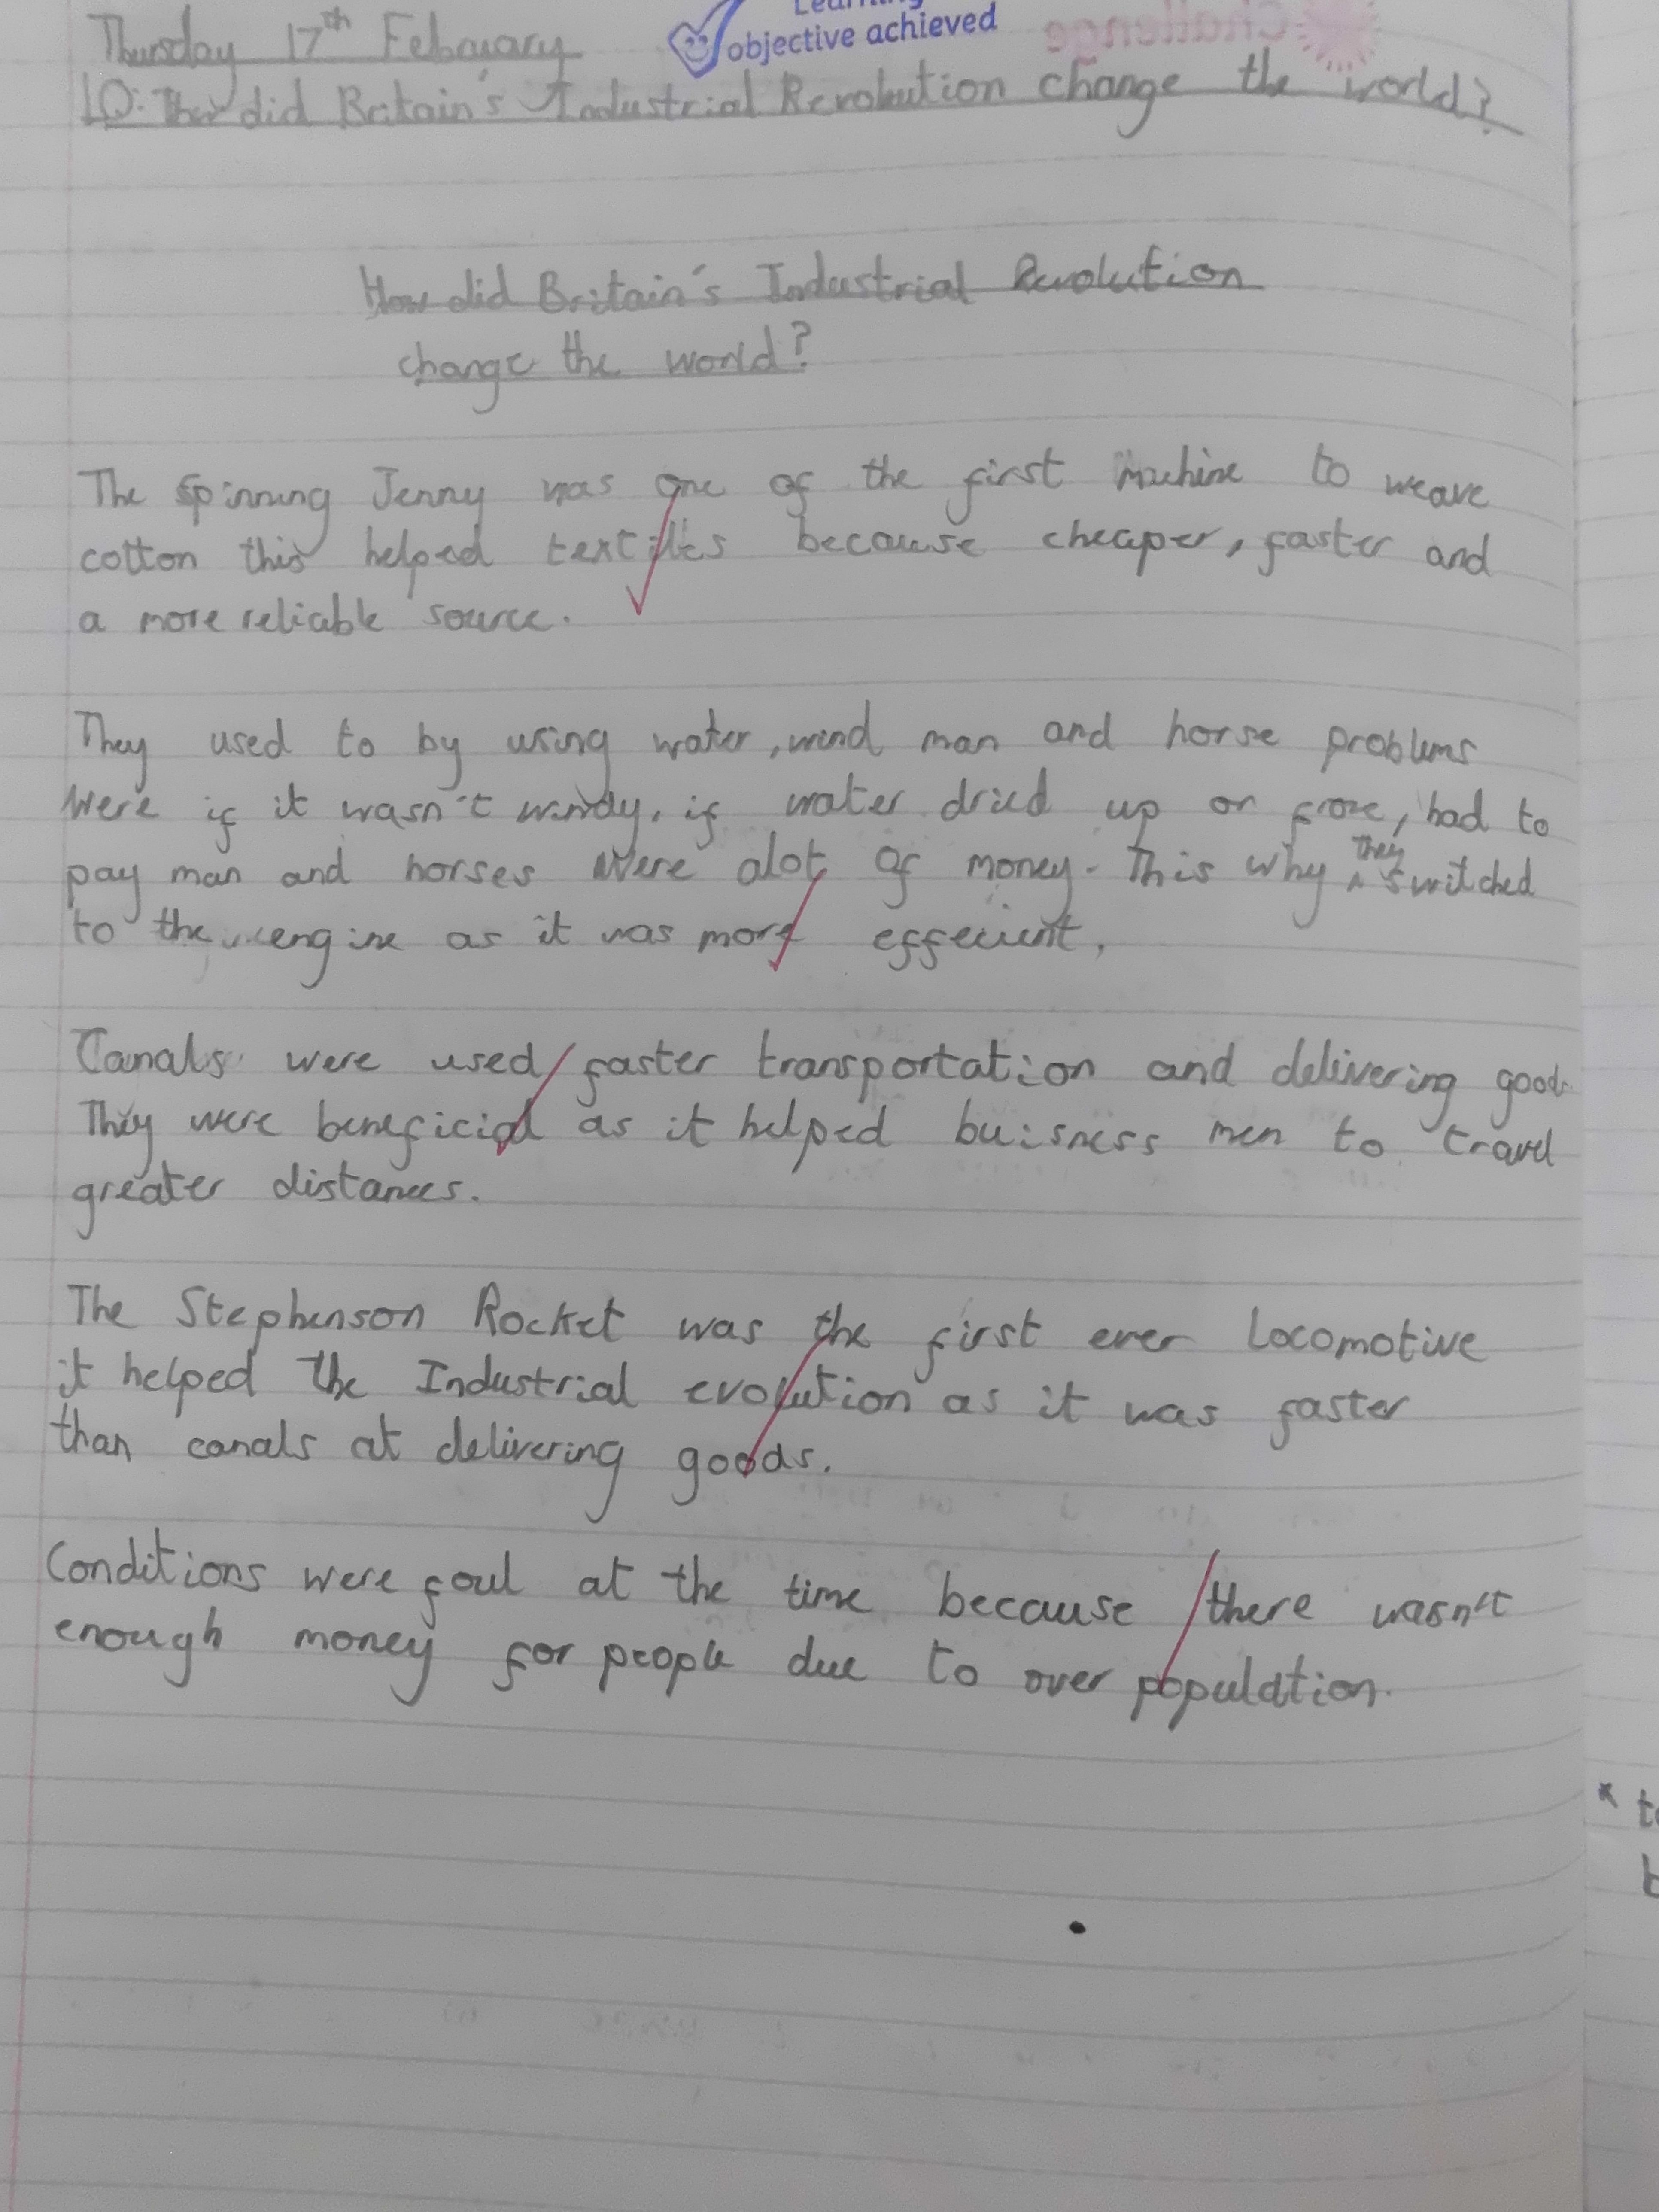 Learning
objective achieved
Challenge
Thursday 17th February
LO: How did Britain's Industrial Revolution change the world?
How did Britain's Industrial Revolution
change the world?
The Spinning Jenny was one of the first machine to weave
cotton this helped textiles because cheaper, faster and
a more reliable source.
They used to by using water, wind man and horse problems
Were if it wasn't windy, if water dried up or froze, had to
pay man and horses were alot of money. This why they switched
to the engine as it was more effecient.
Canals were used faster transportation and delivering goods
They were beneficial as it helped buisness men to travel
greater distances.
The Stephenson Rocket was the first ever Locomotive
it helped the Industrial evolution as it was faster
than canals at delivering goods.
Conditions were foul at the time because there wasn't
enough money for people due to over population.